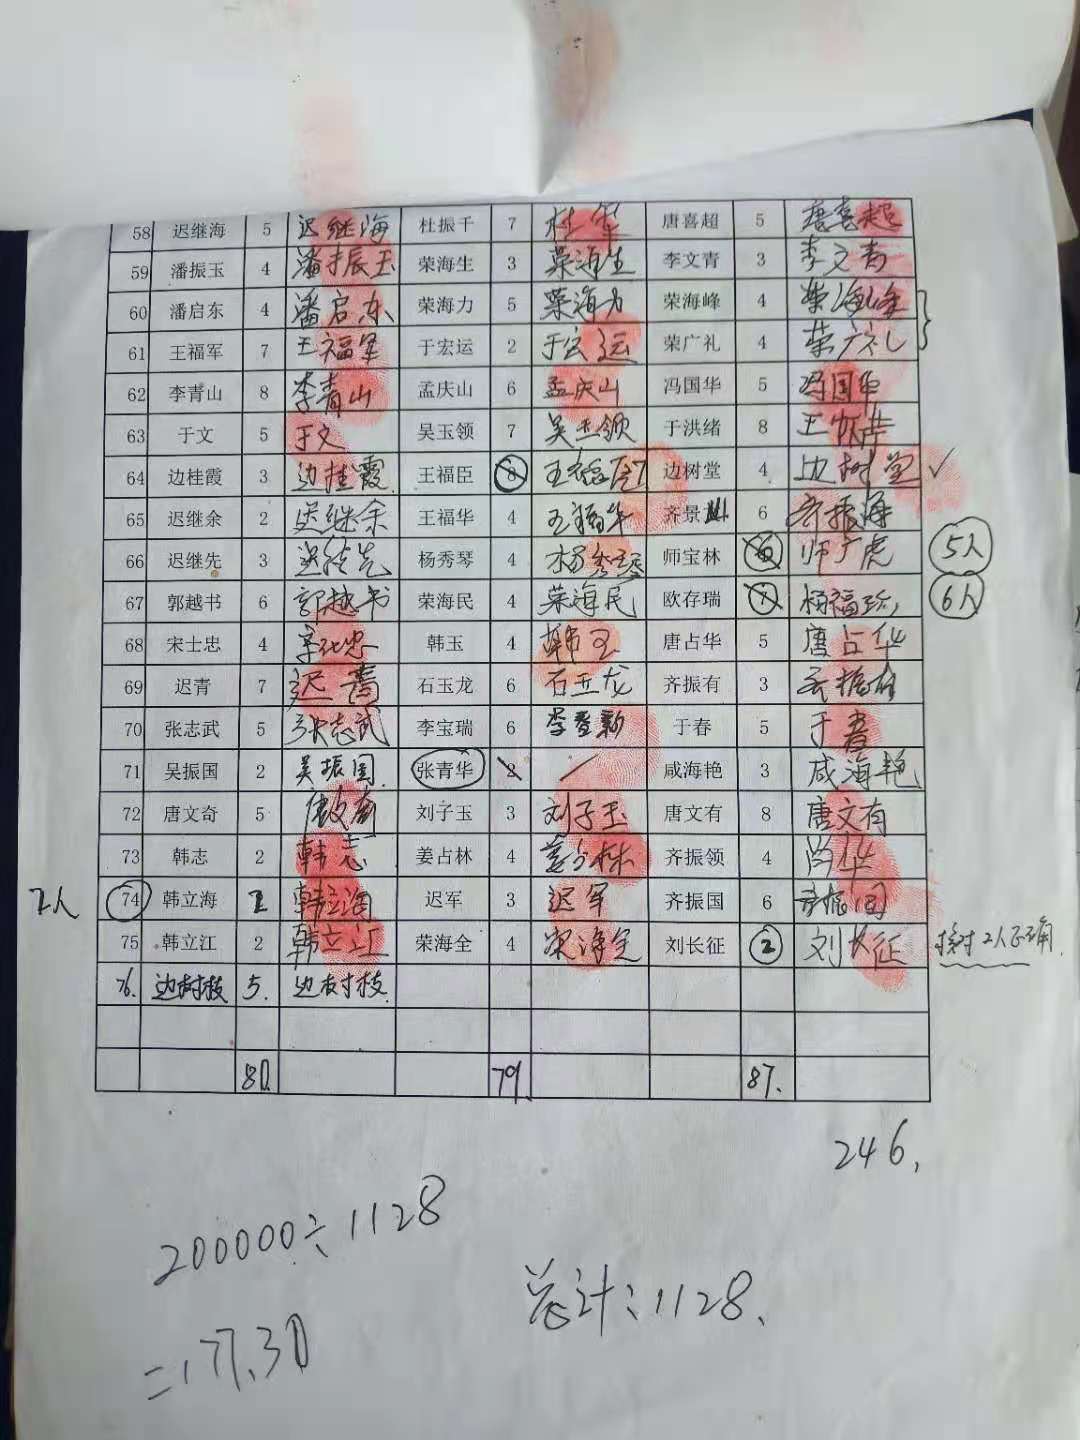 58 迟继海 5 迟继海 杜振千 7 杜华 唐喜超 5 唐喜超
59 潘振玉 4 潘振玉 荣海生 3 荣海生 李文青 3 李文青
60 潘启东 4 潘启东 荣海力 5 荣海力 荣海峰 4 荣海峰
61 王福军 7 王福军 于宏运 2 于宏运 荣广礼 4 荣广礼
62 李青山 8 李青山 孟庆山 6 孟庆山 冯国华 5 冯国华
63 于文 5 于文 吴玉领 7 吴玉领 于洪绪 8
64 边桂霞 3 边桂霞 王福臣 8 王福臣 边树堂 4 边树堂 ✓
65 迟继余 2 迟继余 王福华 4 王福华 齐景山 6 齐振海
66 迟继先 3 迟继先 杨秀琴 4 杨秀琴 师宝林 师广虎 5人
67 郭越书 6 郭越书 荣海民 4 荣海民 欧存瑞 7 杨福珍 6人
68 宋士忠 4 宋士忠 韩玉 4 韩玉 唐占华 5 唐占华
69 迟青 7 迟青 石玉龙 6 石玉龙 齐振有 3 齐振有
70 张志武 5 张志武 李宝瑞 6 于春 5 于春
71 吴振国 2 吴振国 张青华 2 咸海艳 3 咸海艳
72 唐文奇 5 刘子玉 3 刘子玉 唐文有 8 唐文有
73 韩志 2 韩志 姜占林 4 齐振领 4 肖华
2人 74 韩立海 2 韩立海 迟军 3 迟军 齐振国 6 齐振国
75 韩立江 2 韩立江 荣海全 4 荣海全 刘长征 2 刘长征 核对2人正确
76. 边树枝 5. 边树枝
80. 79. 87.
246.
200000÷1128
总计:1128.
=177.30